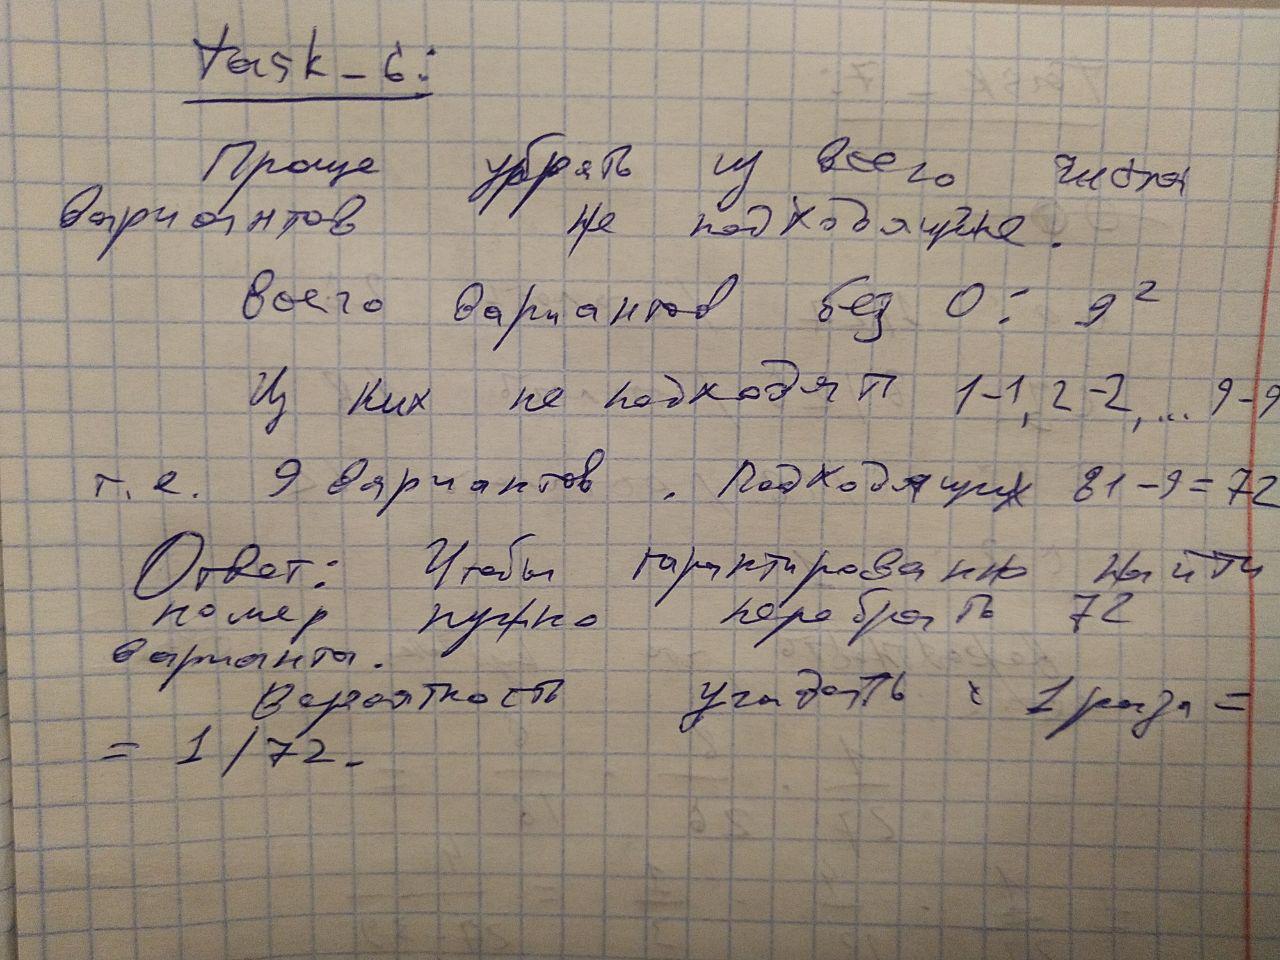 Task - 6:
Проще убрать из всего числа
вариантов не подходящие.
Всего вариантов без 0: 9²
Из них не подходят 1-1, 2-2, ... 9-9
т.е. 9 вариантов. Подходящих 81-9=72
Ответ: Чтобы гарантированно найти
номер нужно перебрать 72
варианта.
Вероятность угадать с 1 раза =
= 1/72.